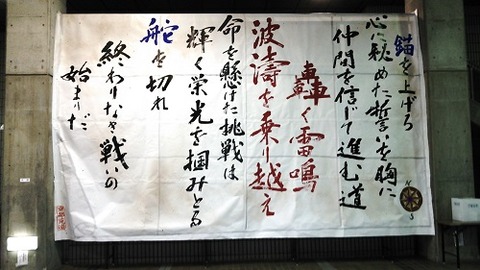 錨を上げろ
心に秘めた誓いを胸に
仲間を信じて進む道
轟く雷鳴
波濤を乗り越え
命を懸けた挑戦は
輝く栄光を掴みとる
舵を切れ
終わりなき戦いの
始まりだ
N
S